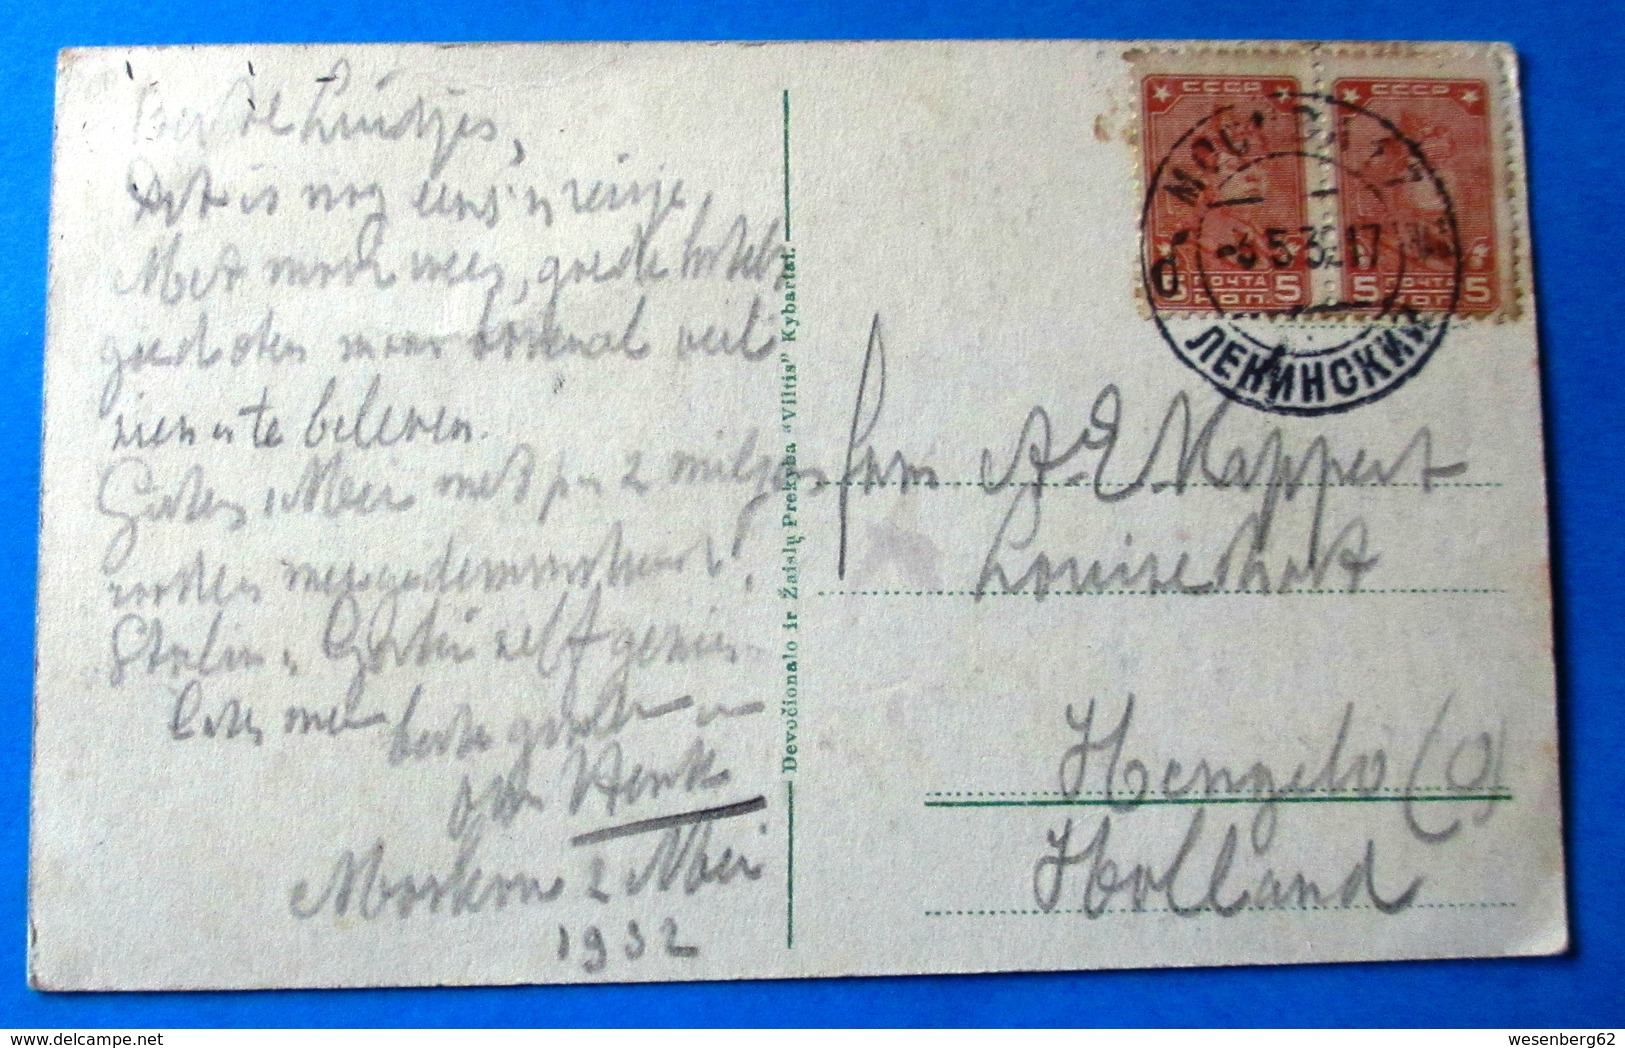 Beste Luidjes,
Dat is nog eens 'n reisje,
Met mooi weer, goede hotels
goed eten maar vooral veel
zien en te beleven.
Gisteren 1 Mei met p.m 2 miljoen
rooden meegedemonstreerd.
Stalin en Gorki zelf gezien
beste groeten
van Henk
Moskou 2 Mei
1932
Devocionalo ir Žaislų Prekyba "Viltis" Kybartai.
СССР
СССР
5 ПОЧТА 5
КОП.
5 ПОЧТА 5
КОП.
МОСКВА 17
3 5 32 17
ЛЕНИНСКИЙ
Fam A. E. Kappert
Hengelo (O)
Holland
wesenberg62